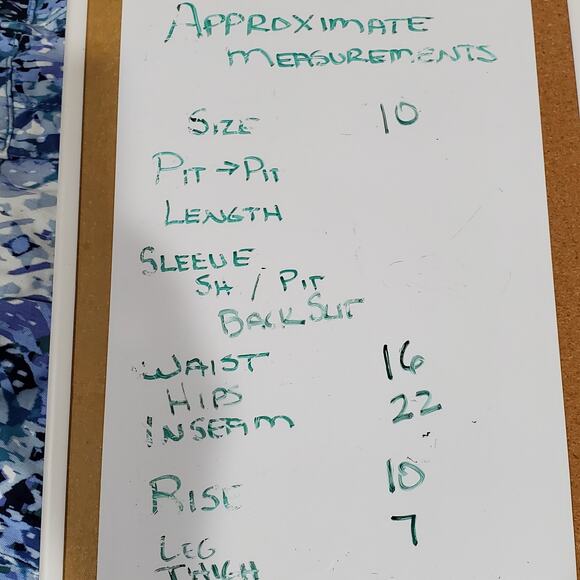 APPROXIMATE
MEASUREMENTS
SIZE 10
PIT → PIT
LENGTH
SLEEVE
SH / PIT
BACK SLIT
WAIST 16
HIPS 22
INSEAM
RISE 10
LEG 7
THIGH